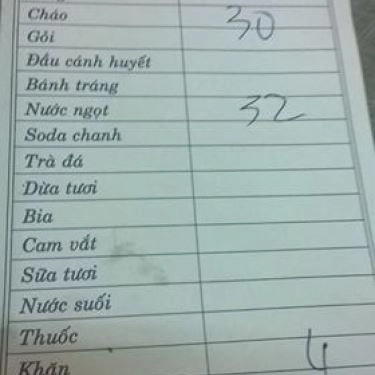 Cháo 30
Gỏi
Đầu cánh huyết
Bánh tráng
Nước ngọt 32
Soda chanh
Trà đá
Dừa tươi
Bia
Cam vắt
Sữa tươi
Nước suối
Thuốc
Khăn 4